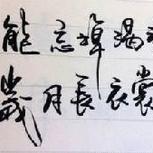 能忘掉渴
歲月長衣裳